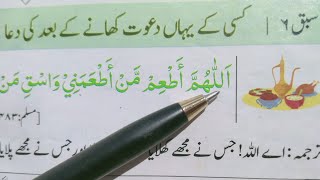 سبق ۶ کسی کے یہاں دعوت کھانے کے بعد کی دعا
اَللّٰهُمَّ أَطْعِمْ مَّنْ أَطْعَمَنِيْ وَاسْقِ مَنْ
[مسلم:
ترجمہ: اے اللہ! جس نے مجھے کھلایا اور جس نے مجھے پلایا